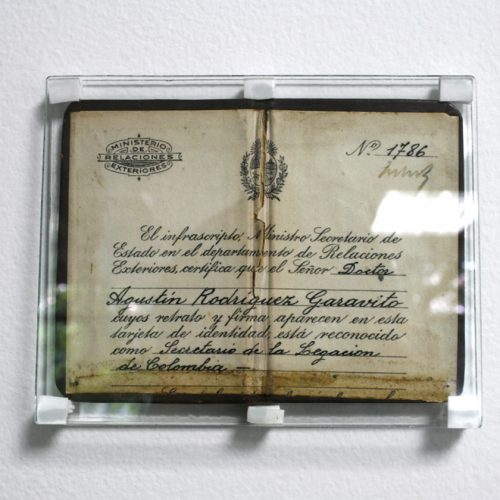 MINISTERIO
DE
RELACIONES
EXTERIORES
Nº 1786
El infrascripto, Ministro Secretario de
Estado en el departamento de Relaciones
Exteriores, certifica que el Señor Doctor
Agustín Rodriguez Garavito
cuyos retrato y firma aparecen en esta
tarjeta de identidad, está reconocido
como Secretario de la Legacion
de Colombia —